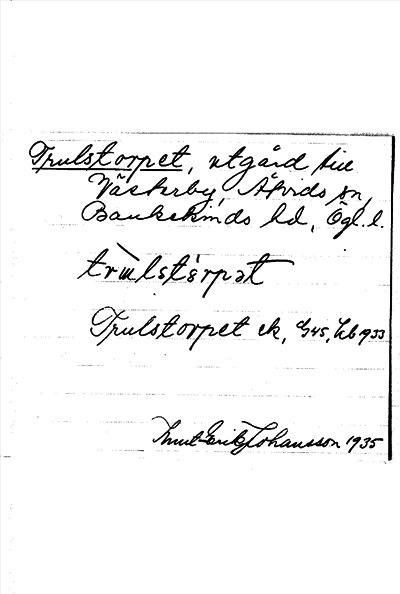 Trulstorpet, utgård till
Västerby, Åtvids sn,
Bankekinds hd, Ögl. l.
trùlstórpət
Trulstorpet ek, G45, Lb 1933
Knut-Erik Johansson 1935